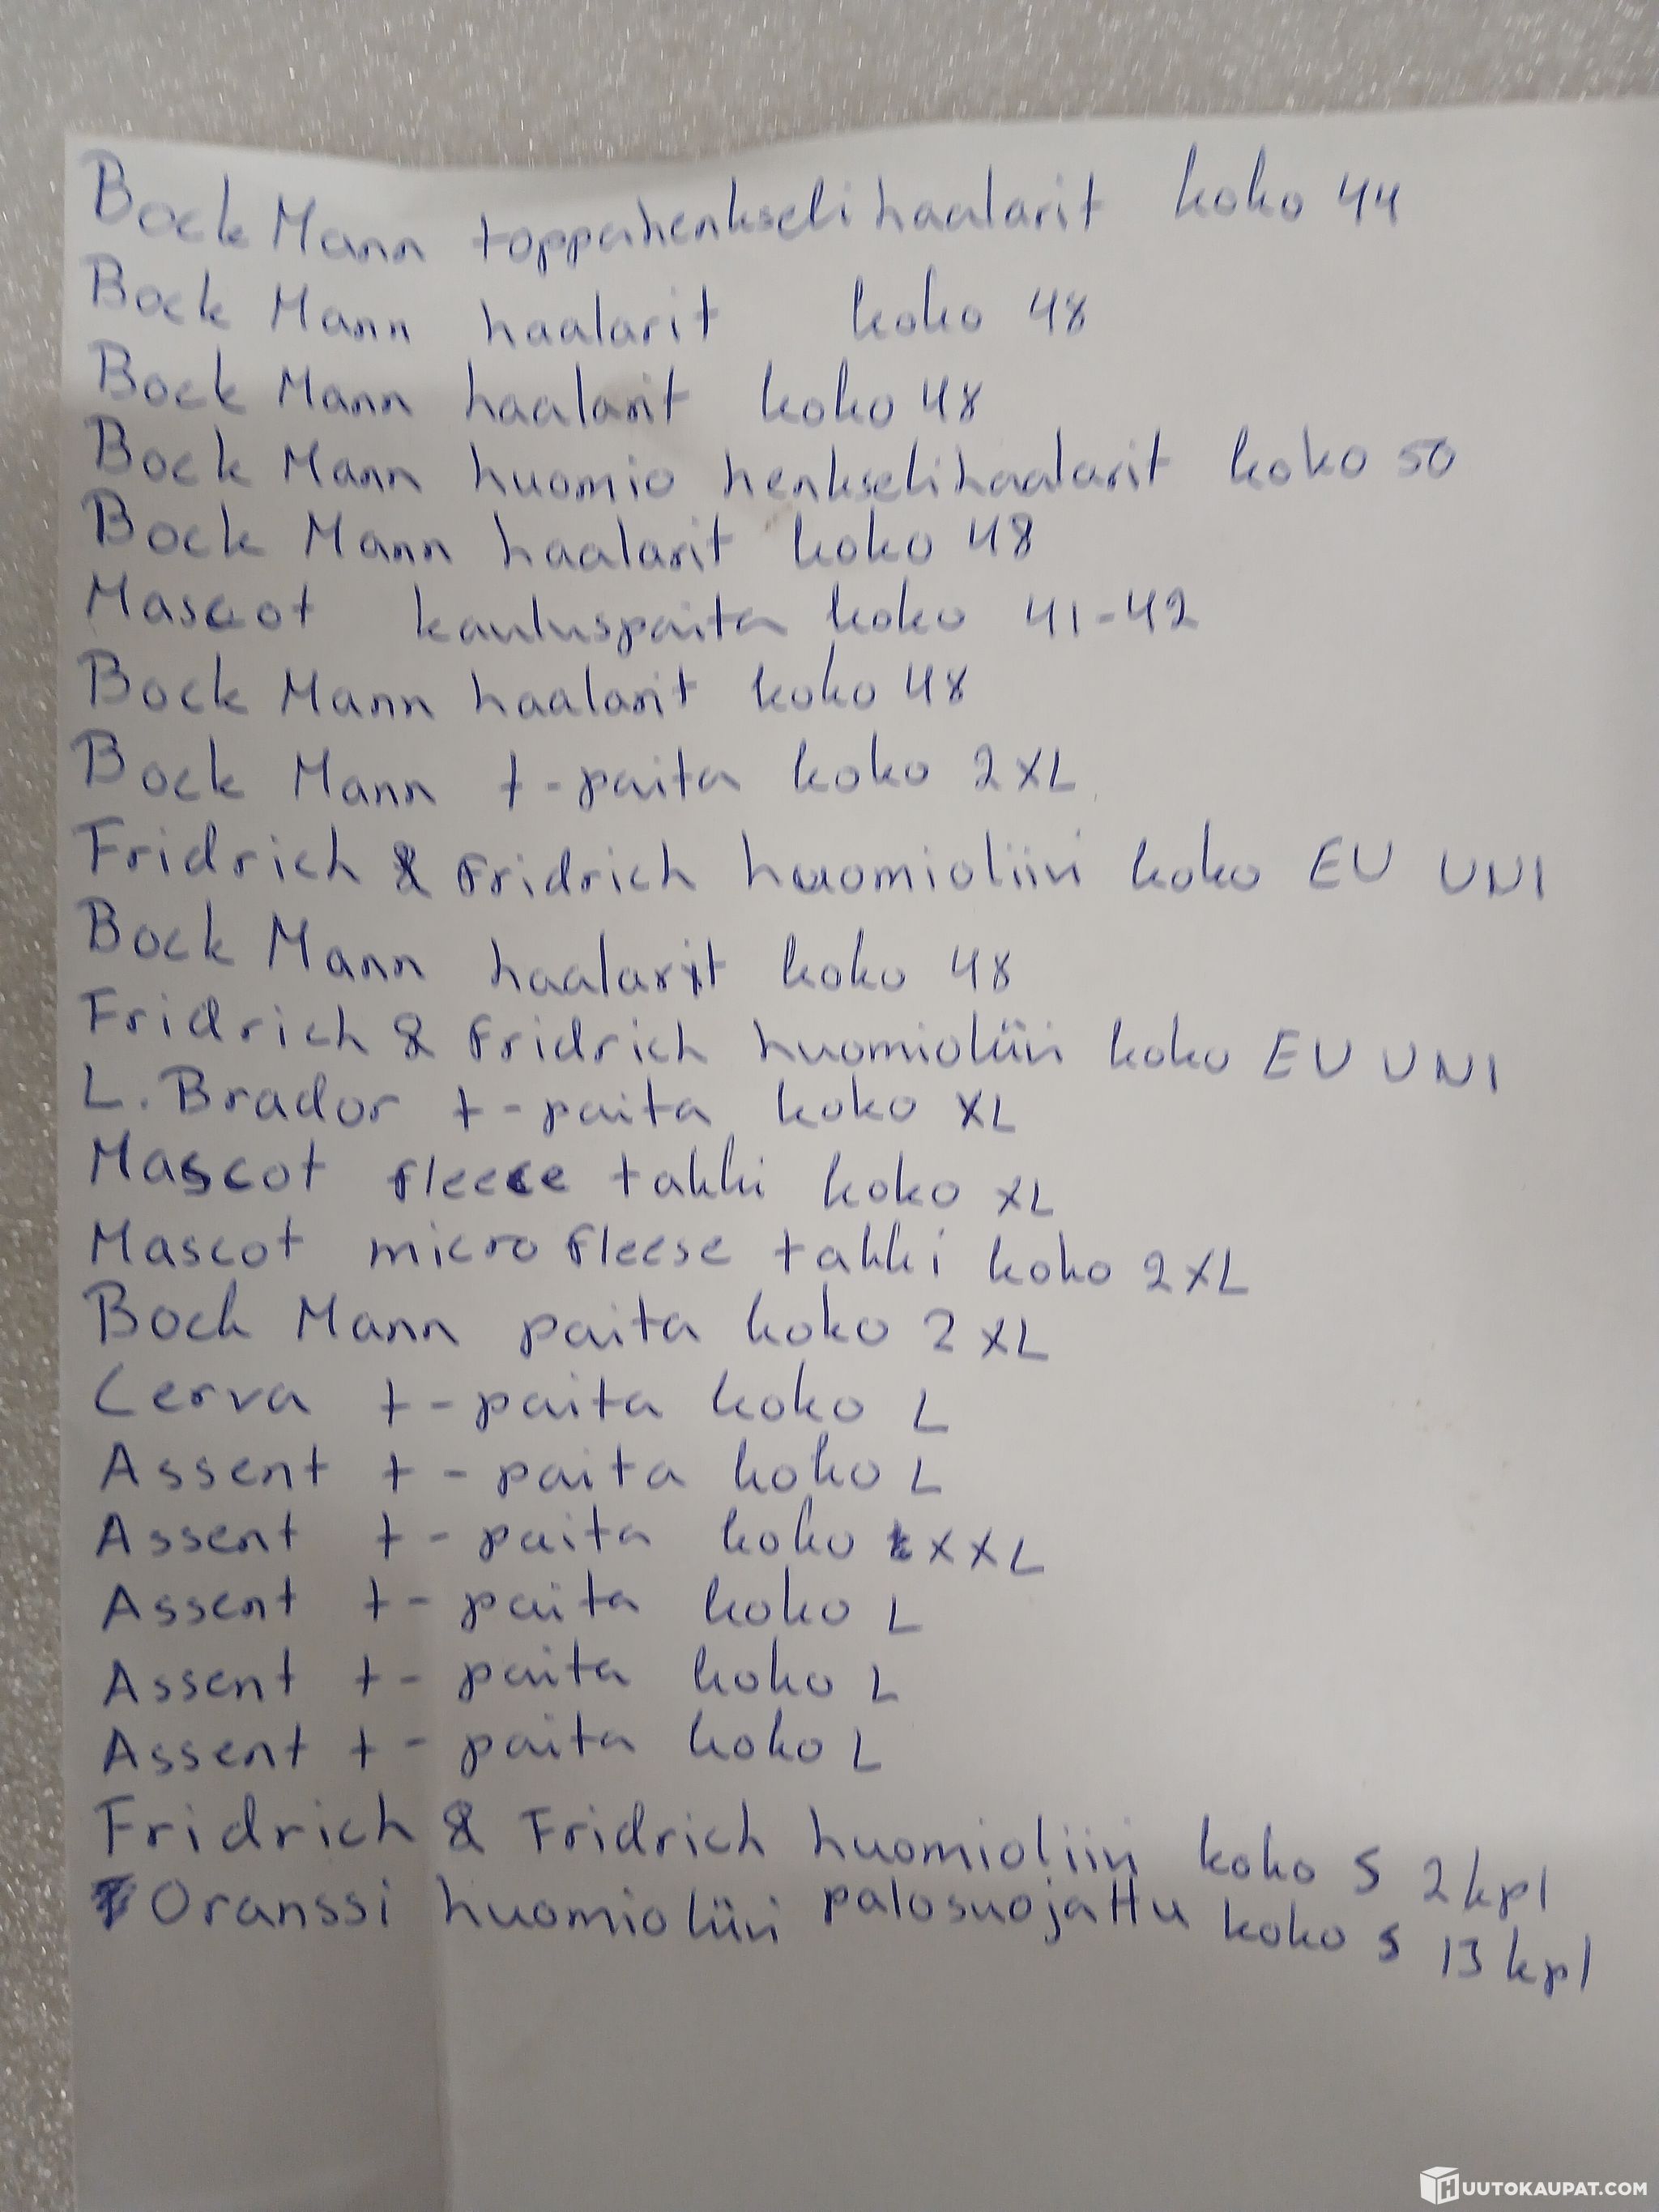 Bock Mann toppahenkselihaalarit koko 44
Bock Mann haalarit koko 48
Bock Mann haalarit koko 48
Bock Mann huomio henkselihaalarit koko 50
Bock Mann haalarit koko 48
Mascot kauluspaita koko 41-42
Bock Mann haalarit koko 48
Bock Mann t-paita koko 2XL
Fridrich & Fridrich huomioliivi koko EU UNI
Bock Mann haalarit koko 48
Fridrich & Fridrich huomioliivi koko EU UNI
L. Brador t-paita koko XL
Mascot fleece takki koko XL
Mascot micro fleese takki koko 2XL
Bock Mann paita koko 2XL
Cerva t-paita koko L
Assent t-paita koko L
Assent t-paita koko XXL
Assent t-paita koko L
Assent t-paita koko L
Assent t-paita koko L
Fridrich & Fridrich huomioliivi koko S 2kpl
Oranssi huomioliivi palosuojattu koko S 13kpl
HUUTOKAUPAT.COM